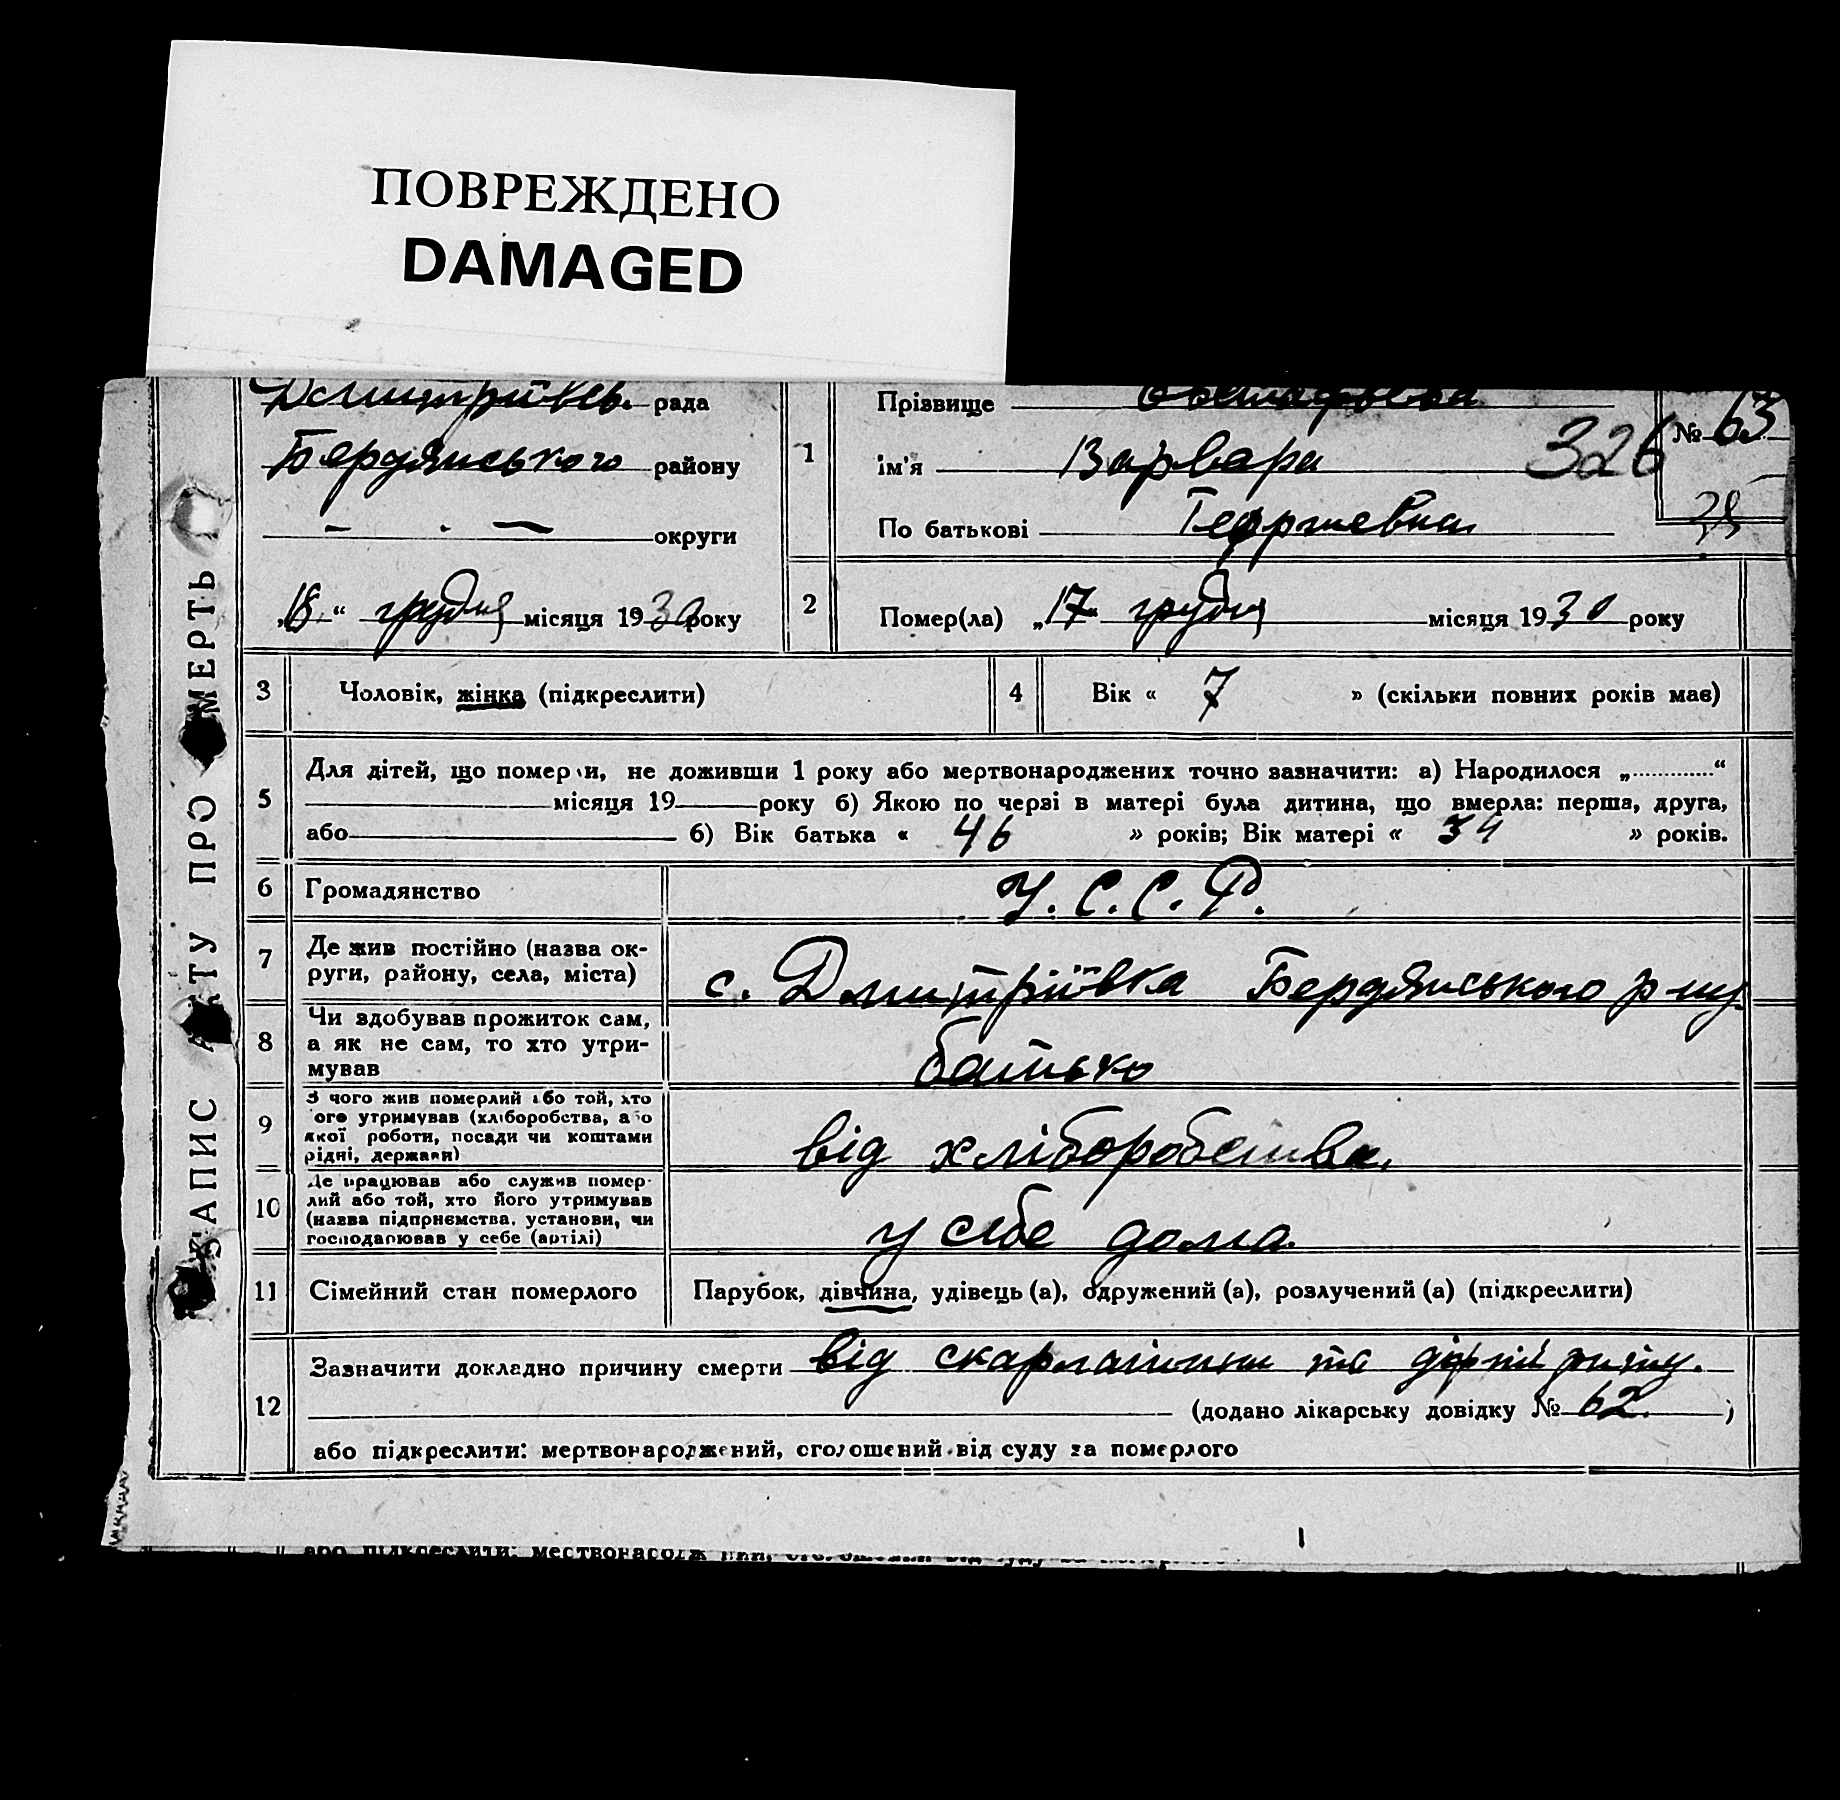 ПОВРЕЖДЕНО
DAMAGED
ЗАПИС АКТУ ПРО СМЕРТЬ
Дмитріївсь. рада
Бердянського району
— . — округи
„18“ грудня місяця 1930 року
1
Прізвище
ім'я Варвара
По батькові Георгиевна
326
№ 63
2
Помер(ла) „17“ грудня місяця 1930 року
3 Чоловік, жінка (підкреслити)
4 Вік « 7 » (скільки повних років має)
5
Для дітей, що померли, не доживши 1 року або мертвонароджених точно зазначити: а) Народилося „ “
місяця 19 року б) Якою по черзі в матері була дитина, що вмерла: перша, друга,
або б) Вік батька « 46 » років; Вік матері « 34 » років.
6 Громадянство У. С. С. Р.
7 Де жив постійно (назва ок-
руги, району, села, міста)
с. Дмитріївка Бердянського р-ну
8 Чи здобував прожиток сам,
а як не сам, то хто утри-
мував
батько
9 З чого жив померлий або той, хто
його утримував (хліборобства, або
якої роботи, посади чи коштами
рідні, держави)
від хліборобства.
10 Де працював або служив помер-
лий або той, хто його утримував
(назва підприємства, установи, чи
господарював у себе (артілі)
у себе дома.
11 Сімейний стан померлого Парубок, дівчина, удівець (а), одружений (а), розлучений (а) (підкреслити)
12
Зазначити докладно причину смерти від скарлатини та
(додано лікарську довідку № 62. )
або підкреслити: мертвонароджений, оголошений від суду за померлого
або підкреслити: мертвонародж